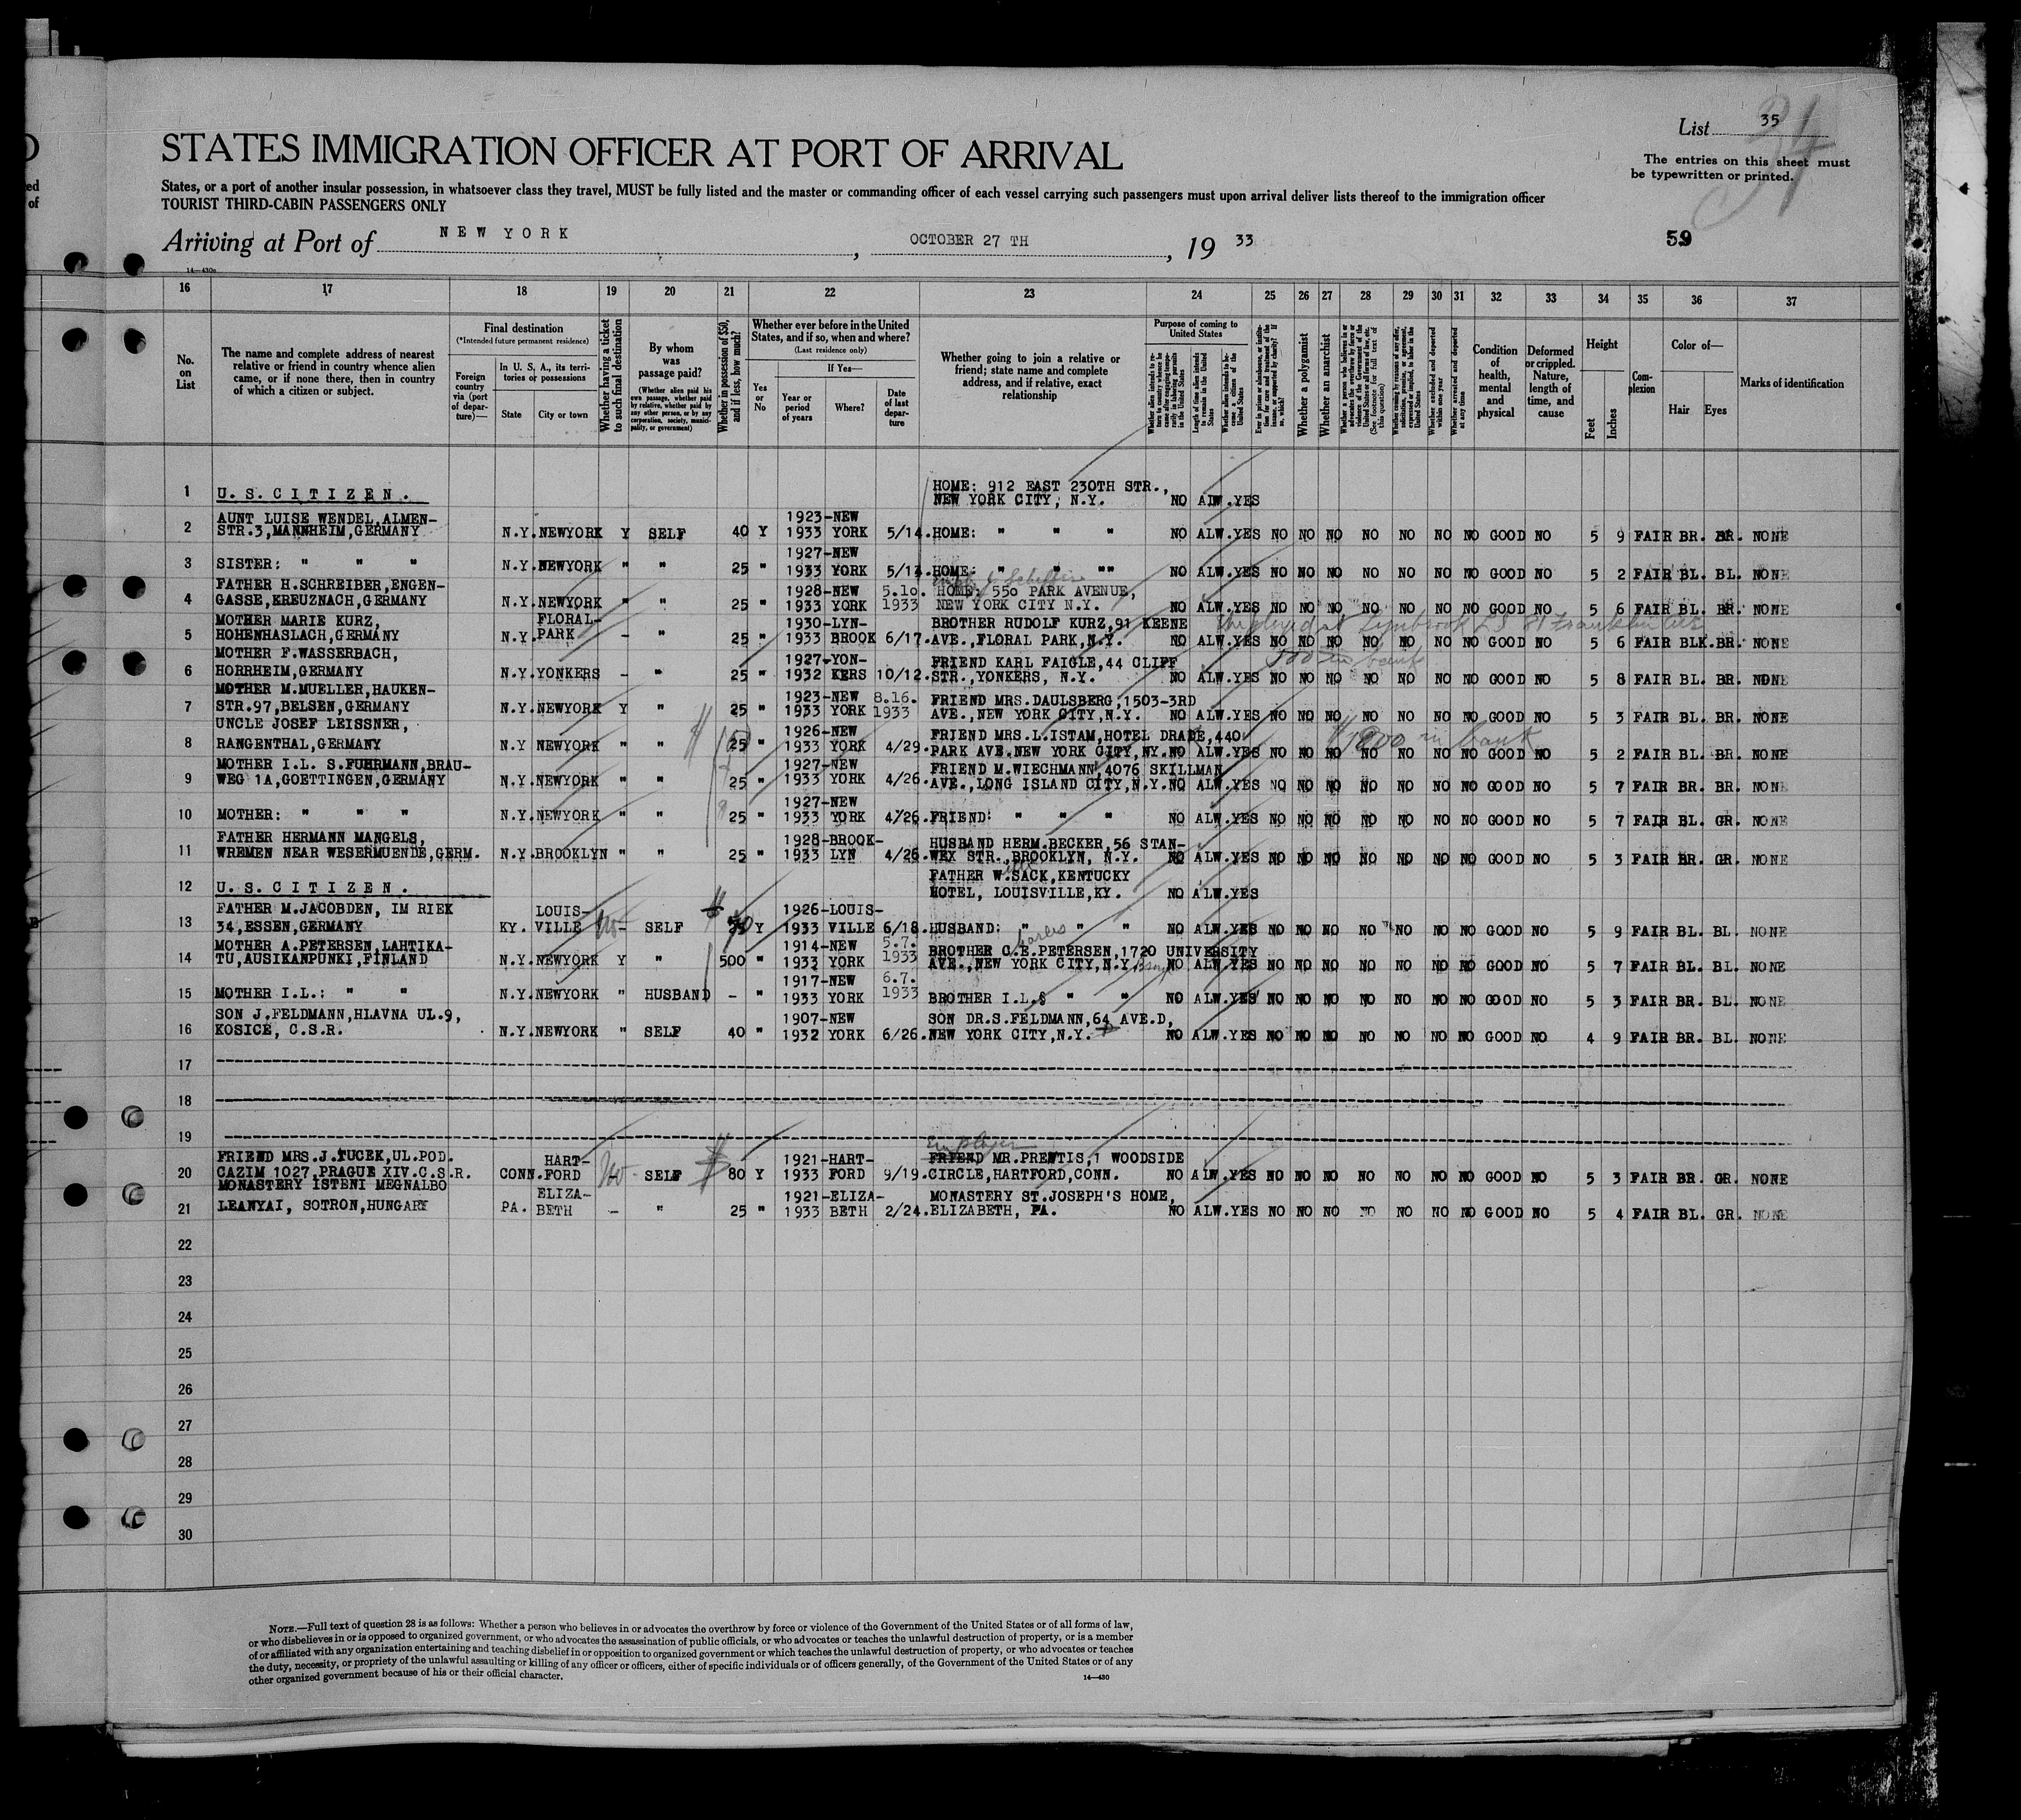 List 35
34
STATES IMMIGRATION OFFICER AT PORT OF ARRIVAL
The entries on this sheet must
be typewritten or printed.
States, or a port of another insular possession, in whatsoever class they travel, MUST be fully listed and the master or commanding officer of each vessel carrying such passengers must upon arrival deliver lists thereof to the immigration officer
TOURIST THIRD-CABIN PASSENGERS ONLY
Arriving at Port of NEW YORK, OCTOBER 27 TH, 19 33
59
14—430a
16 17 18 19 20 21 22 23 24 25 26 27 28 29 30 31 32 33 34 35 36 37
No. on List
The name and complete address of nearest relative or friend in country whence alien came, or if none there, then in country of which a citizen or subject.
Final destination
(*Intended future permanent residence)
Foreign country via (port of departure)—
In U. S. A., its territories or possessions
State
City or town
Whether having a ticket to such final destination
By whom was passage paid?
(Whether alien paid his own passage, whether paid by relative, whether paid by any other person, or by any corporation, society, municipality, or government)
Whether in possession of $50, and if less, how much?
Whether ever before in the United States, and if so, when and where?
(Last residence only)
Yes or No
If Yes—
Year or period of years
Where?
Date of last departure
Whether going to join a relative or friend; state name and complete address, and if relative, exact relationship
Purpose of coming to United States
Whether a polygamist
Whether an anarchist
Condition of health, mental and physical
Deformed or crippled. Nature, length of time, and cause
Height
Feet
Inches
Complexion
Color of—
Hair
Eyes
Marks of identification
1 U. S. CITIZEN. HOME: 912 EAST 230TH STR., NEW YORK CITY, N.Y. NO ALW.YES
2 AUNT LUISE WENDEL,ALMEN-STR.3,MANNHEIM,GERMANY N.Y. NEWYORK Y SELF 40 Y 1923-1933 NEW YORK 5/14. HOME: " " " NO ALW.YES NO NO NO NO NO NO NO GOOD NO 5 9 FAIR BR. BR. NONE
3 SISTER: " " " N.Y. NEWYORK " " 25 " 1927-1933 NEW YORK 5/13. HOME: " " "" NO ALW.YES NO NO NO NO NO NO NO GOOD NO 5 2 FAIR BL. BL. NONE
4 FATHER H.SCHREIBER,ENGEN-GASSE,KREUZNACH,GERMANY N.Y. NEWYORK " " 25 " 1928-1933 NEW YORK 5.10. 1933 HOME: 550 PARK AVENUE, NEW YORK CITY N.Y. NO ALW.YES NO NO NO NO NO NO NO GOOD NO 5 6 FAIR BL. BR. NONE
5 MOTHER MARIE KURZ, HOHENHASLACH,GERMANY N.Y. FLORAL-PARK - " 25 " 1930-1933 LYN-BROOK 6/17. BROTHER RUDOLF KURZ,91 KEENE AVE.,FLORAL PARK,N.Y. NO ALW.YES NO NO NO NO NO NO NO GOOD NO 5 6 FAIR BLK.BR. NONE
6 MOTHER F.WASSERBACH, HORRHEIM,GERMANY N.Y. YONKERS - " 25 " 1927-1932 YON-KERS 10/12. FRIEND KARL FAIGLE,44 CLIFF STR.,YONKERS, N.Y. NO ALW.YES NO NO NO NO NO NO NO GOOD NO 5 8 FAIR BL. BR. NONE
500 in bank
7 MOTHER M.MUELLER,HAUKEN-STR.97,BELSEN,GERMANY N.Y. NEWYORK Y " 25 " 1923-1933 NEW YORK 8.16. 1933 FRIEND MRS.DAULSBERG,1503-3RD AVE.,NEW YORK CITY,N.Y. NO ALW.YES NO NO NO NO NO NO NO GOOD NO 5 3 FAIR BL. BR. NONE
8 UNCLE JOSEF LEISSNER, RANGENTHAL,GERMANY N.Y NEWYORK " " 25 " 1926-1933 NEW YORK 4/29. FRIEND MRS.L.ISTAM,HOTEL DRAKE,440 PARK AVE.NEW YORK CITY,NY. NO ALW.YES NO NO NO NO NO NO NO GOOD NO 5 2 FAIR BL. BR. NONE
$1800 in bank
9 MOTHER I.L. S.FUHRMANN,BRAU-WEG 1A,GOETTINGEN,GERMANY N.Y. NEWYORK " " 25 " 1927-1933 NEW YORK 4/26. FRIEND M.WIECHMANN,4076 SKILLMAN AVE.,LONG ISLAND CITY,N.Y. NO ALW.YES NO NO NO NO NO NO NO GOOD NO 5 7 FAIR BR. BR. NONE
10 MOTHER: " " " N.Y. NEWYORK " " 25 " 1927-1933 NEW YORK 4/26. FRIEND: " " " NO ALW.YES NO NO NO NO NO NO NO GOOD NO 5 7 FAIR BL. GR. NONE
11 FATHER HERMANN MANGELS, WREMEN NEAR WESERMUENDE,GERM. N.Y. BROOKLYN " " 25 " 1928-1933 BROOK-LYN 4/26. HUSBAND HERM.BECKER,56 STAN-WEX STR.,BROOKLYN, N.Y. NO ALW.YES NO NO NO NO NO NO NO GOOD NO 5 3 FAIR BR. GR. NONE
12 U. S. CITIZEN. FATHER W.SACK,KENTUCKY HOTEL, LOUISVILLE,KY. NO ALW.YES
13 FATHER M.JACOBDEN, IM RIEK 34,ESSEN,GERMANY KY. LOUIS-VILLE No - SELF Y 1926-1933 LOUIS-VILLE 6/18. HUSBAND: " " NO ALW.YES NO NO NO NO NO NO NO GOOD NO 5 9 FAIR BL. BL. NONE
14 MOTHER A.PETERSEN,LAHTIKA-TU,AUSIKANPUNKI,FINLAND N.Y. NEWYORK Y " 500 " 1914-1933 NEW YORK 5.7. 1933 BROTHER C.E.PETERSEN,1720 UNIVERSITY AVE.,NEW YORK CITY,N.Y. NO ALW.YES NO NO NO NO NO NO NO GOOD NO 5 7 FAIR BL. BL. NONE
Charles
Bronx
15 MOTHER I.L.: " " N.Y. NEWYORK " HUSBAND - " 1917-1933 NEW YORK 6.7. 1933 BROTHER I.L.: " " NO ALW.YES NO NO NO NO NO NO NO GOOD NO 5 3 FAIR BR. BL. NONE
16 SON J.FELDMANN,HLAVNA UL.9, KOSICE, C.S.R. N.Y. NEWYORK " SELF 40 " 1907-1932 NEW YORK 6/26. SON DR.S.FELDMANN,64 AVE.D, NEW YORK CITY,N.Y. NO ALW.YES NO NO NO NO NO NO NO GOOD NO 4 9 FAIR BR. BL. NONE
17
18
19
Employer
20 FRIEND MRS.J.TUCEK,UL.POD. CAZIM 1027,PRAGUE XIV.C.S.R. CONN. HART-FORD No SELF 80 Y 1921-1933 HART-FORD 9/19. FRIEND MR.PRENTIS,1 WOODSIDE CIRCLE,HARTFORD,CONN. NO ALW.YES NO NO NO NO NO NO NO GOOD NO 5 3 FAIR BR. GR. NONE
21 MONASTERY ISTENI MEGNALBO LEANYAI, SOTRON,HUNGARY PA. ELIZA-BETH - " 25 " 1921-1933 ELIZA-BETH 2/24. MONASTERY ST.JOSEPH'S HOME, ELIZABETH, PA. NO ALW.YES NO NO NO NO NO NO NO GOOD NO 5 4 FAIR BL. GR. NONE
22
23
24
25
26
27
28
29
30
NOTE.—Full text of question 28 is as follows: Whether a person who believes in or advocates the overthrow by force or violence of the Government of the United States or of all forms of law,
or who disbelieves in or is opposed to organized government, or who advocates the assassination of public officials, or who advocates or teaches the unlawful destruction of property, or is a member
of or affiliated with any organization entertaining and teaching disbelief in or opposition to organized government or which teaches the unlawful destruction of property, or who advocates or teaches
the duty, necessity, or propriety of the unlawful assaulting or killing of any officer or officers, either of specific individuals or of officers generally, of the Government of the United States or of any
other organized government because of his or their official character.
14—430